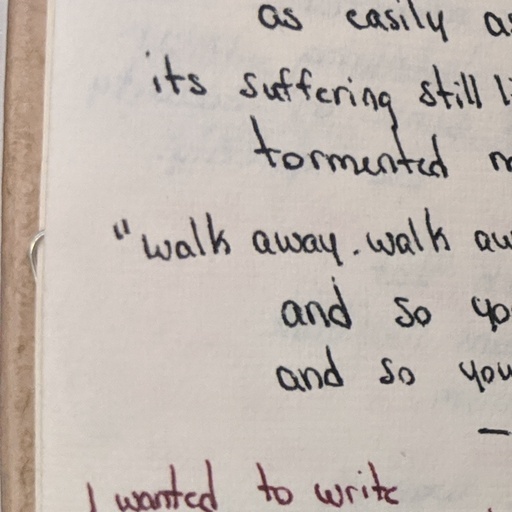 as easily as
its suffering still
tormented
"walk away. walk
and so
and so you
—
I wanted to write